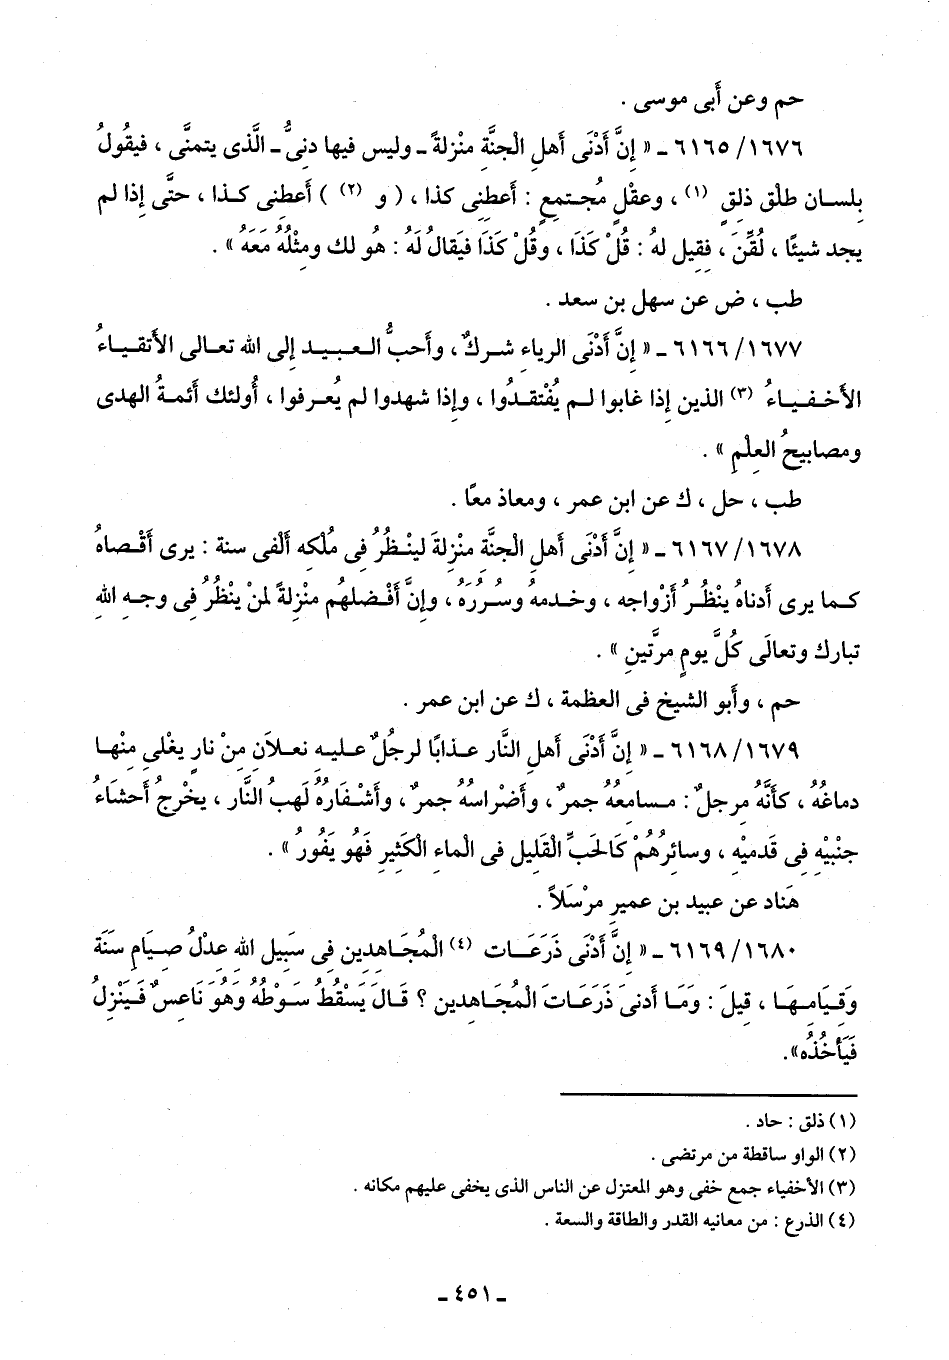 حم وعن أبى موسى .
٦١٦٥/١٦٧٦ ـ « إنَّ أَدْنَى أهلِ الْجنَّةِ منْزلةً ـ وليس فيها دنِىٌّ ـ الَّذى يتمنَّى ، فيقُولُ
بلسان طلْق ذلقٍ (١) ، وعقْلٍ مُجتمعٍ : أعطِنى كذا ، ( و (٢) ) أعطِنى كذا ، حتَّى إذا لم
يجد شيئًا ، لُقِّنَ ، فقيل لهُ : قُلْ كَذَا ، وقُلْ كَذَا فيَقالُ لَهُ : هُو لك ومثْلُهُ مَعَهُ » .
طب ، ض عن سهل بن سعد .
٦١٦٦/١٦٧٧ ـ « إنَّ أَدْنَى الرياءِ شركٌ ، وأحبُّ العبيد إلى الله تعالى الأتقياءُ
الأخفياءُ (٣) الذين إذا غابوا لم يُفْتقدُوا ، وإذا شهدوا لم يُعرفوا ، أُولئك أئمةُ الهدى
ومصابيحُ العِلْمِ » .
طب ، حل ، ك عن ابن عمر ، ومعاذ معًا .
٦١٦٧/١٦٧٨ ـ « إنَّ أَدْنَى أهلِ الجنَّةِ منْزلةَ لينْظُرُ فِى مُلْكِه ألْفى سنة : يرى أقْصاهُ
كما يرى أدناهُ ينْظُرُ أزْواجه ، وخدمهُ وسُررُهُ ، وإنَّ أفْضلهُم منْزلةً لمنْ ينْظُرُ فى وجه اللهِ
تبارك وتعالَى كُلَّ يومٍ مرَّتينِ » .
حم ، وأبو الشيخ فى العظمة ، ك عن ابن عمر .
٦١٦٨/١٦٧٩ ـ « إنَّ أدْنَى أهلِ النَّار عذابًا لرجُلٌ عليه نعلاَن مِنْ نارٍ يغْلِى مِنْها
دماغُهُ ، كأنَّهُ مرجلٌ : مسامعهُ جمرٌ ، وأضْراسهُ جمرٌ ، وأشْفَارُهُ لَهبُ النَّار ، يخْرجُ أحشَاءُ
جنْبيْهِ فِى قدميْهِ ، وسائرُهُمْ كَالحَبِّ الْقَليل فى الْماءِ الْكَثيرِ فَهُو يَفُورُ » .
هَناد عن عبيد بن عميرٍ مرْسَلاً .
٦١٦٩/١٦٨٠ ـ « إنَّ أَدْنَى ذَرَعَات (٤) الْمُجَاهدِين فِى سَبِيل الله عدْلُ صِيَامِ سَنَة
وَقِيَامِهَا ، قِيلَ : وَمَا أدنىَ ذَرَعَاتَ الْمُجَاهدِين ؟ قَالَ يَسْقُطُ سَوْطُهُ وَهُوَ نَاعسٌ فَينْزِلُ
فَيَأخُذُه».
(١) ذلق : حاد .
(٢) الواو ساقطة من مرتضى .
(٣) الأخفياء جمع خفى وهو المعتزل عن الناس الذى يخفى عليهم مكانه .
(٤) الذرع : من معانيه القدر والطاقة والسعة .
ـ ٤٥١ ـ